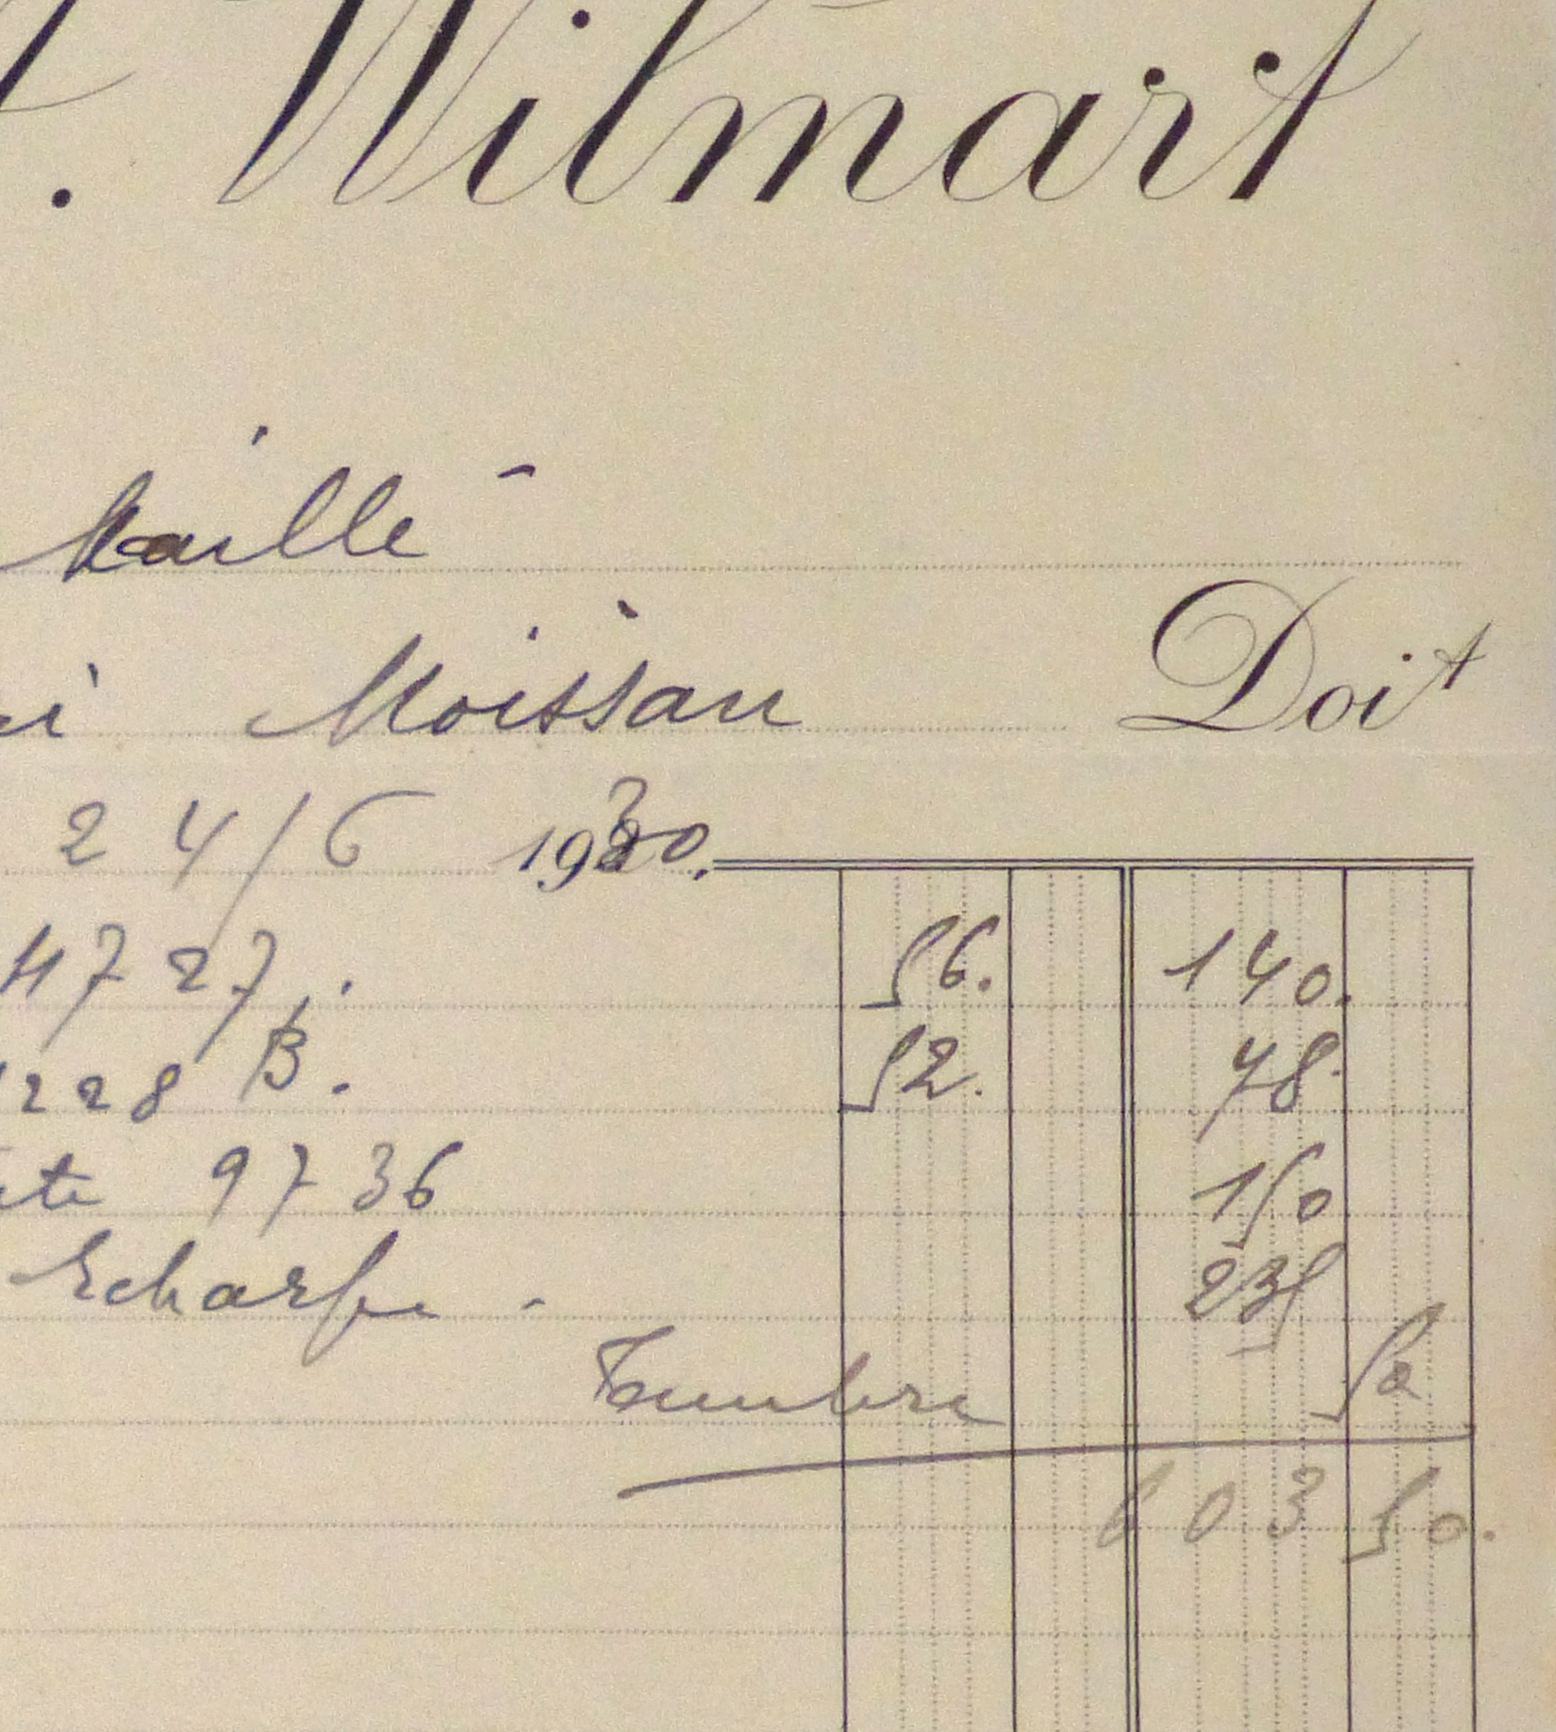 . Wilmart
Maille
i Moissan Doit
24/6 1930.
4727. 56. 140.
1228 B. 52. 78.
9736 150
Echarpe - 235
Timbre 50
603 50.